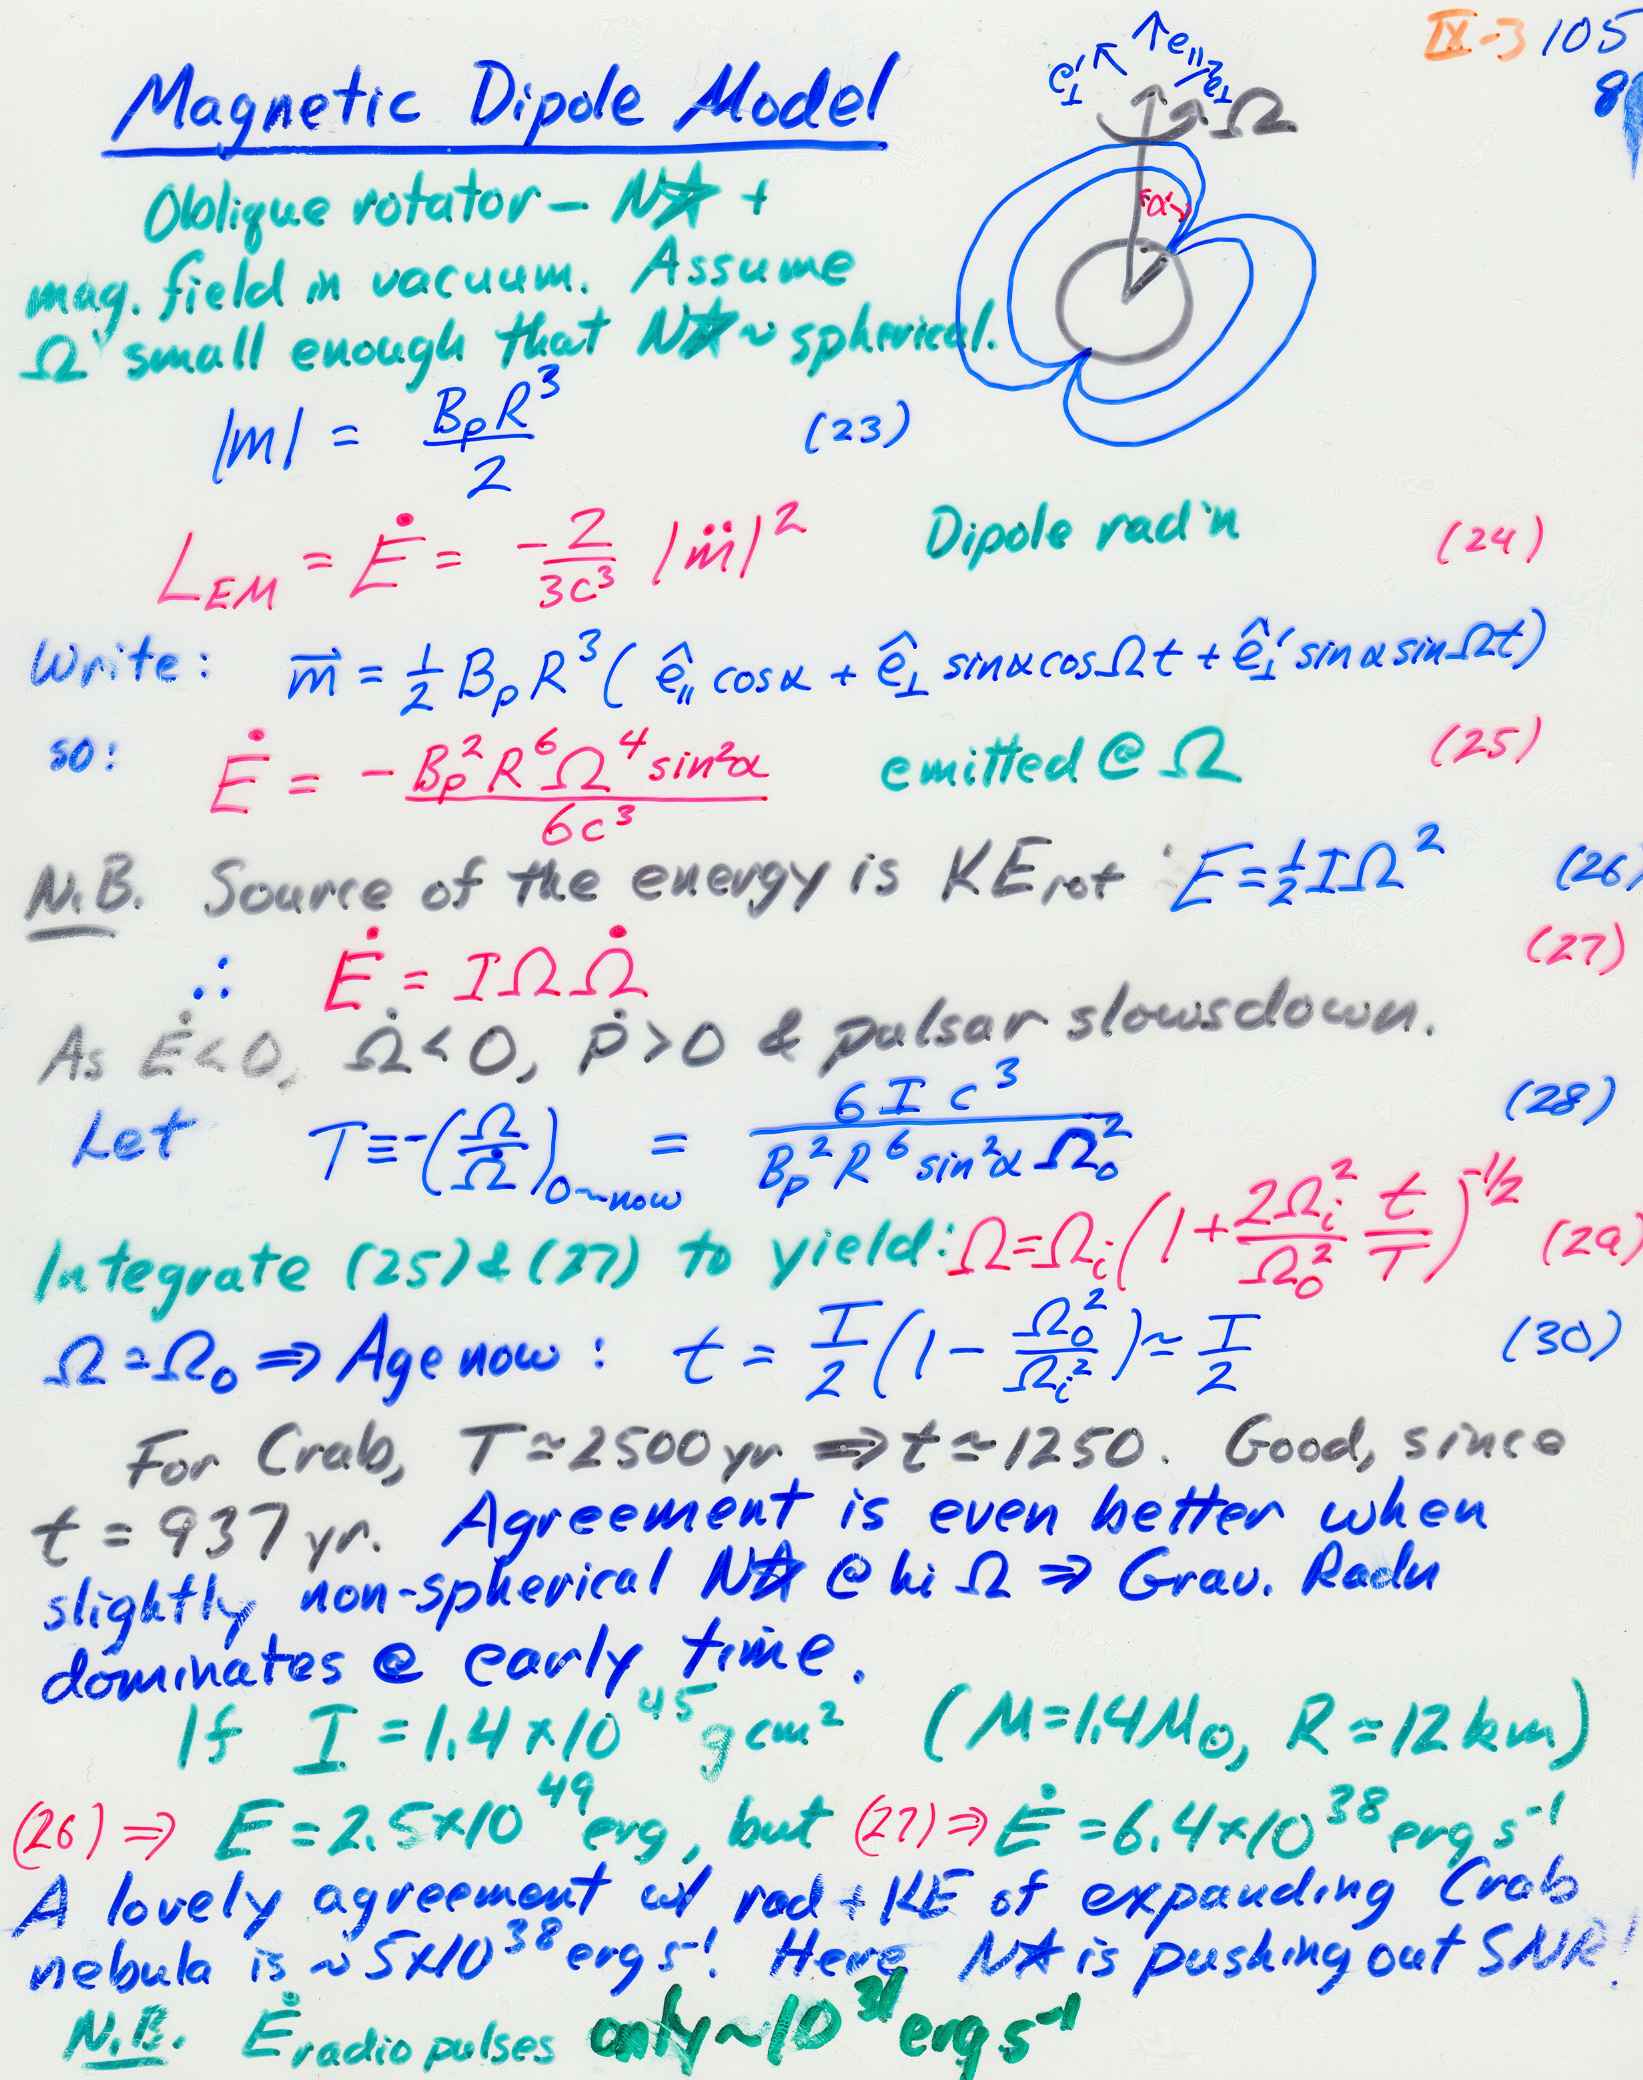 IX-3 105
8
Magnetic Dipole Model
e'⊥ e∥ e⊥ Ω
α
Oblique rotator – N☆ +
mag. field in vacuum. Assume
Ω small enough that N☆ ~ spherical.
|m| = BpR³/2 (23)
L_EM = Ė = -2/3c³ |m̈|² Dipole rad'n (24)
Write: m⃗ = ½ BpR³( ê∥ cosα + ê⊥ sinα cosΩt + ê⊥' sinα sinΩt)
so: Ė = - Bp²R⁶Ω⁴sin²α/6c³ emitted @ Ω (25)
N.B. Source of the energy is KErot : E=½IΩ² (26)
∴ Ė = IΩΩ̇ (27)
As Ė<0, Ω̇<0, Ṗ>0 & pulsar slowsdown.
Let T≡-(Ω/Ω̇)₀~now = 6Ic³/Bp²R⁶sin²αΩ₀² (28)
Integrate (25)&(27) to yield: Ω=Ωi(1+2Ωi²/Ω₀² t/T)^-1/2 (29)
Ω=Ω₀ ⇒ Age now: t = T/2(1 - Ω₀²/Ωi²) ≃ T/2 (30)
For Crab, T≃2500yr ⇒ t≃1250. Good, since
t = 937yr. Agreement is even better when
slightly non-spherical N☆ @ hi Ω ⇒ Grav. Radn
dominates @ early time.
If I=1.4×10⁴⁵ g cm² (M=1.4M⊙, R=12km)
(26)⇒ E=2.5×10⁴⁹ erg, but (27)⇒ Ė=6.4×10³⁸ erg s⁻¹
A lovely agreement w/ rad+KE of expanding Crab
nebula is ~5×10³⁸ erg s⁻¹! Here N☆ is pushing out SNR!
N.B. Ė radio pulses only~10³¹ erg s⁻¹